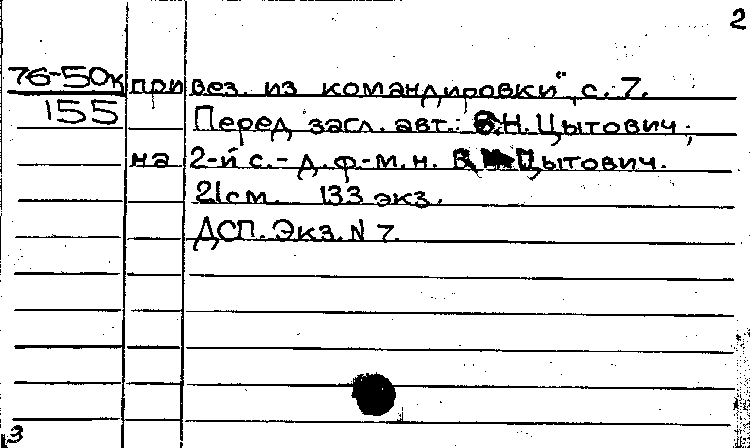 2
76-50к привез. из командировки", с. 7.
155
Перед загл. авт.: В.Н. Цытович;
на 2-й с. - д. ф.-м. н. В. Цытович.
21 см. 133 экз.
ДСП. Экз. N 7.
3